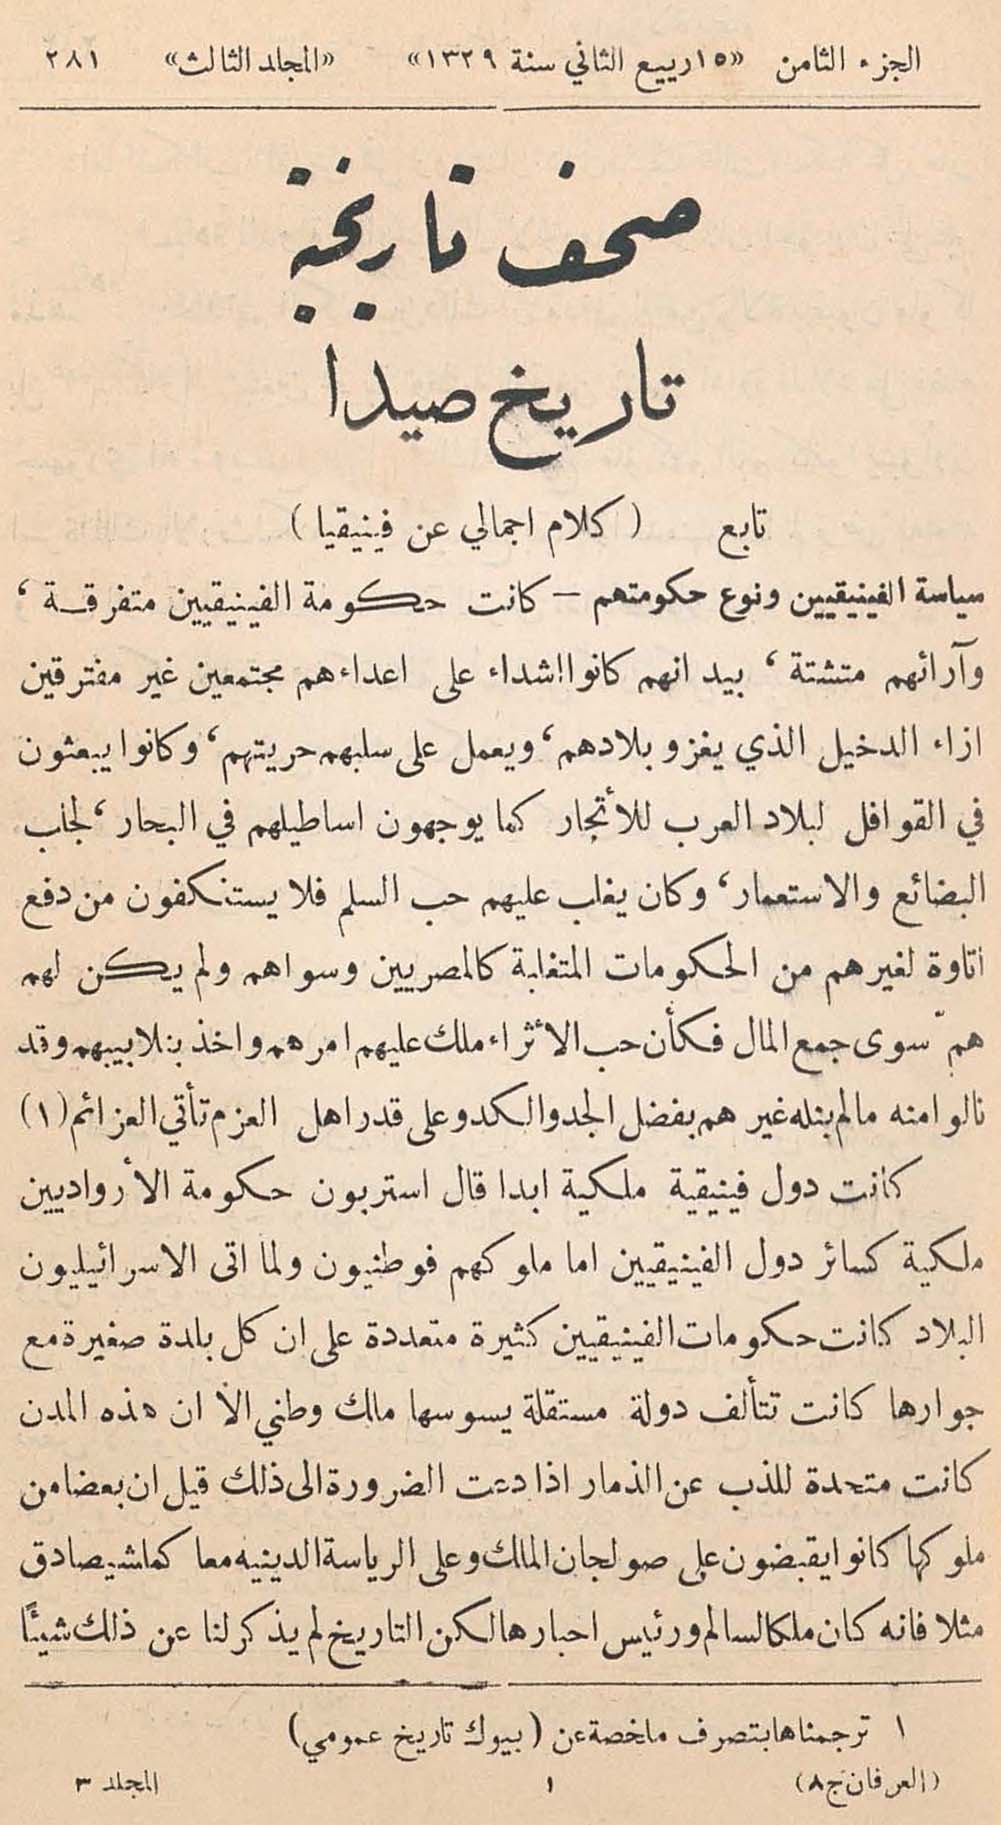 الجزء الثامن «١٥ ربيع الثاني سنة ١٣٢٩» «المجلد الثالث» ٢٨١
صحف تاريخية
تاريخ صيدا
تابع (كلام اجمالي عن فينيقيا)
سياسة الفينيقيين ونوع حكومتهم – كانت حكومة الفينيقيين متفرقة ،
وآرائهم متشتة ، بيد انهم كانوا اشداء على اعداءهم مجتمعين غير مفترقين
ازاء الدخيل الذي يغزو بلادهم ، ويعمل على سلبهم حريتهم ، وكانوا يبعثون
في القوافل لبلاد العرب للأتجار كما يوجهون اساطيلهم في البحار ، لجلب
البضائع والاستعمار ، وكان يغلب عليهم حب السلم فلا يستنكفون من دفع
اتاوة لغيرهم من الحكومات المتغلبة كالمصريين وسواهم ولم يكن لهم
همّ سوى جمع المال فكأن حب الأثراء ملك عليهم امرهم واخذ بتلابيبهم وقد
نالوا منه مالم ينله غيرهم بفضل الجد والكد وعلى قدر اهل العزم تأتي العزائم (١)
كانت دول فينيقية ملكية ابدا قال استربون حكومة الأرواديين
ملكية كسائر دول الفينيقيين اما ملوكهم فوطنيون ولما اتى الاسرائيليون
البلاد كانت حكومات الفينيقيين كثيرة متعددة على ان كل بلدة صغيرة مع
جوارها كانت تتألف دولة مستقلة يسوسها ملك وطني الا ان هذه المدن
كانت متحدة للذب عن الذمار اذا دعت الضرورة الى ذلك قيل ان بعضا من
ملوكها كانوا يقبضون على صولجان الملك وعلى الرياسة الدينيه معا كملشيصادق
مثلا فانه كان ملكا لسالم ورئيس احبارها لكن التاريخ لم يذكر لنا عن ذلك شيئًا
١ ترجمناها بتصرف ملخصة عن (بيوك تاريخ عمومي)
(العرفان ج٨) ١ المجلد ٣